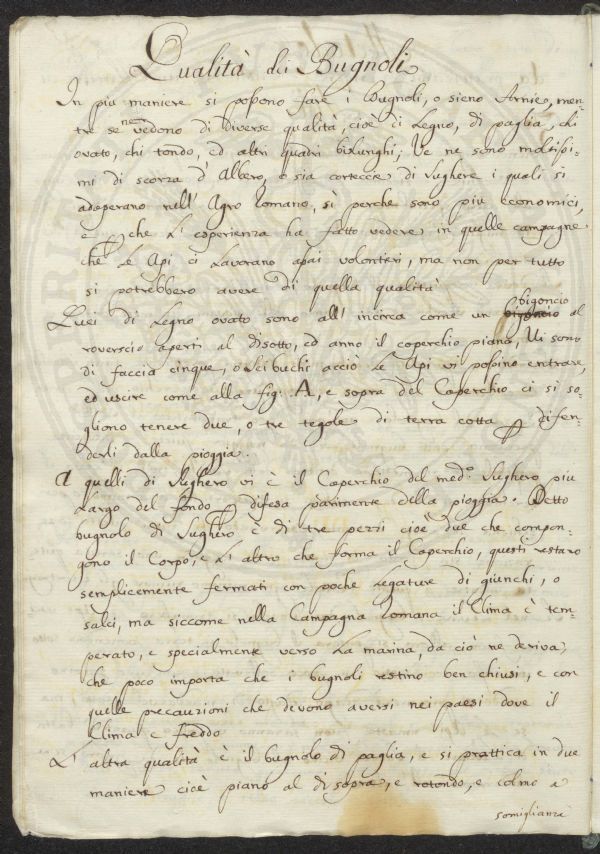 Qualità dei Bugnoli
In più maniere si possono fare i Bugnoli, o sieno Arnie, men-
tre se ne vedono di diverse qualità, cioè di Legno, di paglia, chi
ovato, chi tondo, ed altri quadri bislunghi; Ve ne sono moltissi-
mi di scorza d'Albero, o sia cortecie di Sughere i quali si
adoperano nell'Agro Romano, sì perche sono più economici,
e che L'esperienza ha fatto vedere in quelle campagne
che Le Api ci Lavorano assai volontieri, ma non per tutto
si potrebbero avere di quella qualità
Quei di Legno ovato sono all'incirca come un bigoncio al
roverscio aperti al disotto, ed anno il coperchio piano, Vi sono
di faccia cinque, o sei buchi acciò Le Api vi possino entrare,
ed uscire come alla fig: A, e sopra del Caperchio ci si so-
gliono tenere due, o tre tegole di terra cotta p difen-
derli dalla pioggia.
A quelli di Sughero vi è il Caperchio del med.o Sughero più
Largo del fondo p difesa parimente della pioggia. Detto
bugnolo di Sughero è di tre pezzi cioè due che compon-
gono il Corpo, e L'altro che forma il Caperchio, questi restano
semplicemente fermati con poche Legature di giunchi, o
salci, ma siccome nella Campagna Romana il Clima è tem-
perato, e specialmente verso La marina, da ciò ne deriva,
che poco importa che i bugnoli restino ben chiusi, e con
quelle precauzioni che devono aversi nei paesi dove il
Clima è freddo
L'altra qualità è il bugnolo di paglia, e si prattica in due
maniere cioè piano al di sopra, e rotondo, e colmo a
somiglianza